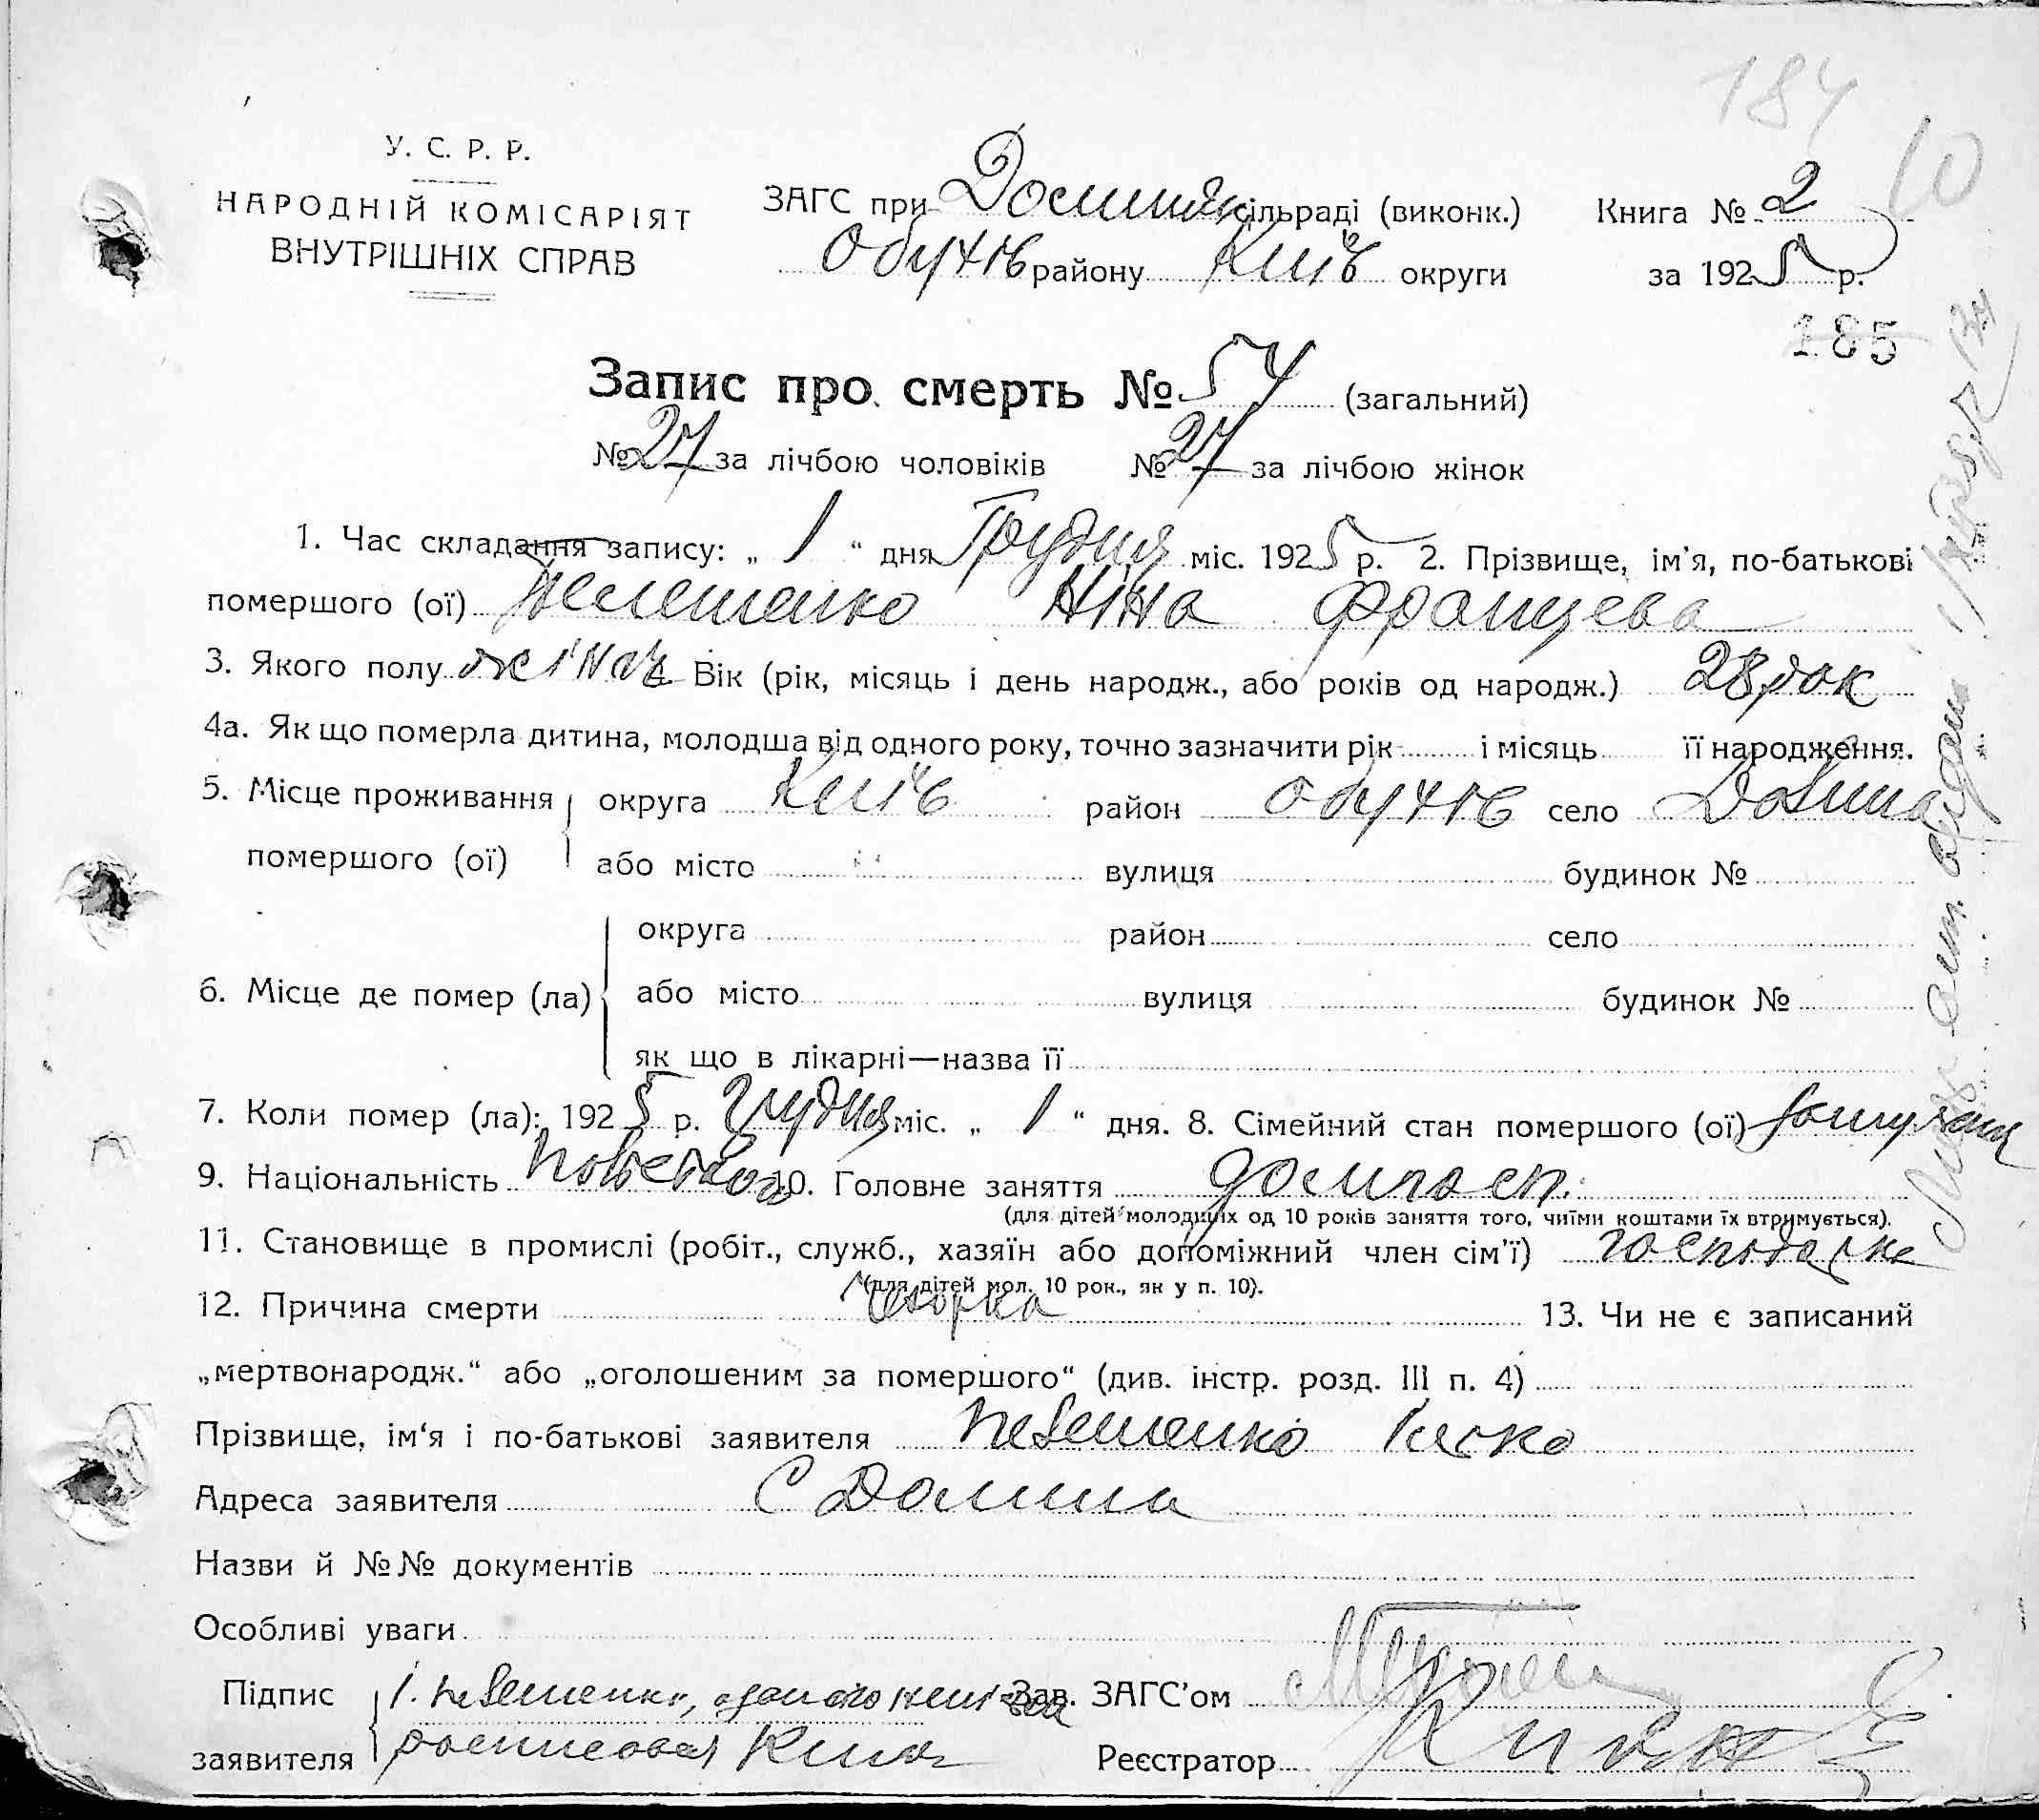 184
10
У. С. Р. Р.
НАРОДНІЙ КОМІСАРІЯТ
ВНУТРІШНІХ СПРАВ
ЗАГС при Долинян сільраді (виконк.)
Обухів району Київ округи
Книга № 2
за 1925 р.
185
Запис про смерть № 54 (загальний)
№ 27 за лічбою чоловіків № 27 за лічбою жінок
1. Час складання запису: „ 1 “ дня Грудня міс. 1925 р. 2. Прізвище, ім'я, по-батькові
помершого (ої) Ніна Францева
3. Якого полу жіноч 4. Вік (рік, місяць і день народж., або років од народж.) 28 рок
4а. Як що померла дитина, молодша від одного року, точно зазначити рік і місяць її народження.
5. Місце проживання округа Київ район Обухів село Долина
помершого (ої) або місто вулиця будинок №
округа район село
6. Місце де помер (ла) або місто вулиця будинок №
як що в лікарні—назва її
7. Коли помер (ла): 1925 р. Грудня міс. „ 1 “ дня. 8. Сімейний стан помершого (ої)
9. Національність 10. Головне заняття домгосп.
(для дітей молодших од 10 років заняття того, чиїми коштами їх втримується).
11. Становище в промислі (робіт., служб., хазяїн або допоміжний член сім'ї)
(для дітей мол. 10 рок., як у п. 10).
12. Причина смерти 13. Чи не є записаний
„мертвонародж.“ або „оголошеним за помершого“ (див. інстр. розд. III п. 4)
Прізвище, ім‘я і по-батькові заявителя
Адреса заявителя С Долина
Назви й №№ документів
Особливі уваги
Підпис Зав. ЗАГС'ом
заявителя Реєстратор